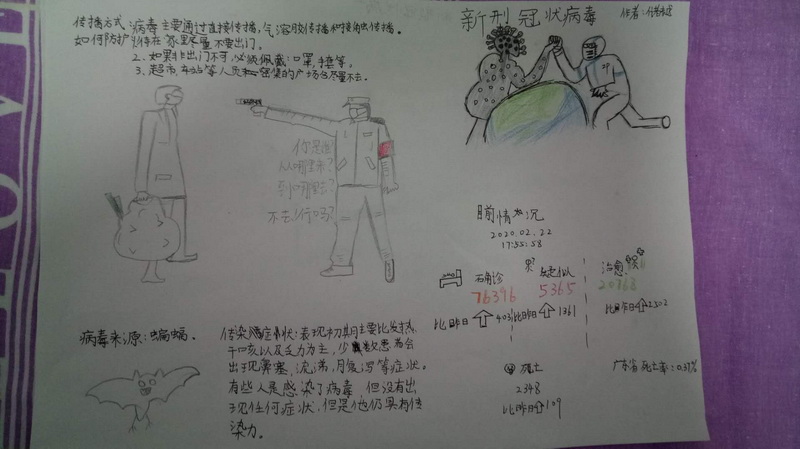 传播方式:病毒主要通过直接传播,气溶胶传播和接触传播。
2、如果非出门不可,必须佩戴:口罩,
3、超市,车站等人员密集的广场合尽量不去。
新型冠状病毒
作者:
你是谁?
从哪里来?
到哪里去?
不去!行吗?
目前情况
2020.02.22
17:55:58
确诊
76396
比昨日
疑似
5365
比昨日 1361
治愈
20768
比昨日
死亡
2348
比昨日 109
广东省死亡率:0.37%
病毒来源:蝙蝠。
传染症状:表现初期主要比发热,
干咳以及乏力为主,少数患者会
出现鼻塞,流涕,腹泻等症状。
有些人是感染了病毒,但没有出
现任何症状,但是他仍具有传
染力。